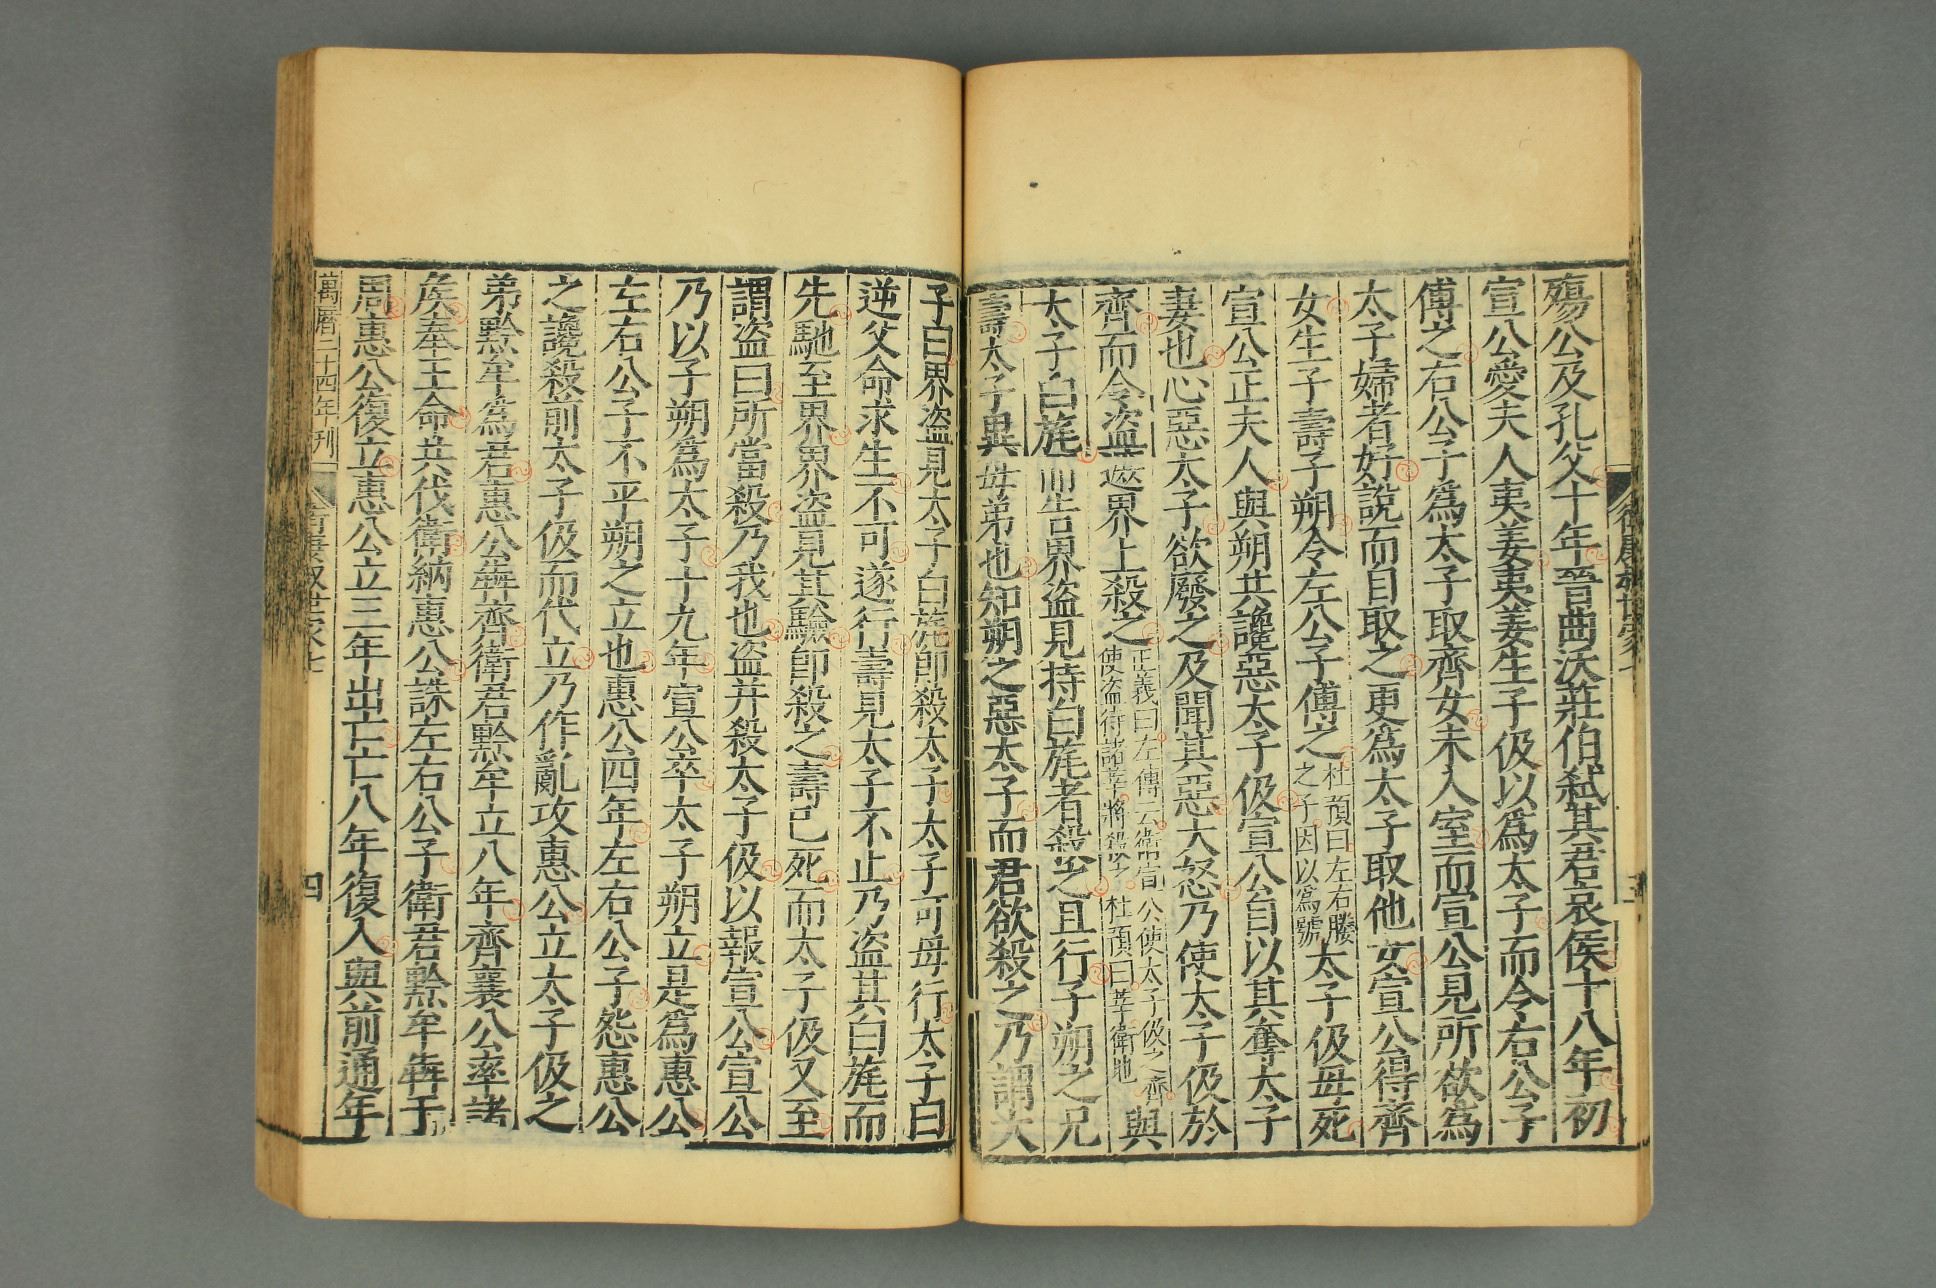 殤公及孔父十年晉曲沃莊伯弑其君哀侯十八年初
宣公愛夫人夷姜夷姜生子伋以爲太子而令右公子
傅之右公子爲太子取齊女未入室而宣公見所欲爲
太子婦者好說而自取之更爲太子取他女宣公得齊
女生子壽子朔令左公子傅之
杜預曰左右媵
之子因以爲號
太子伋母死
宣公正夫人與朔共讒惡太子伋宣公自以其奪太子
妻也心惡太子欲廢之及聞其惡大怒乃使太子伋於
齊而令盜遮界上殺之
正義曰左傳云衛宣公使太子伋之齊
使盜待諸莘將殺之杜預曰莘衛地
與
太子白旄而告界盜見持白旄者殺之且行子朔之兄
壽太子異母弟也知朔之惡太子而君欲殺之乃謂太
子曰界盜見太子白旄即殺太子太子可毋行太子曰
逆父命求生不可遂行壽見太子不止乃盜其白旄而
先馳至界界盜見其驗即殺之壽已死而太子伋又至
謂盜曰所當殺乃我也盜并殺太子伋以報宣公宣公
乃以子朔爲太子十九年宣公卒太子朔立是爲惠公
左右公子不平朔之立也惠公四年左右公子怨惠公
之讒殺前太子伋而代立乃作亂攻惠公立太子伋之
弟黔牟爲君惠公犇齊衛君黔牟立八年齊襄公率諸
侯奉王命共伐衛納惠公誅左右公子衛君黔牟犇于
周惠公復立惠公立三年出亡亡八年復入與前通年
萬曆二十四年刊
四